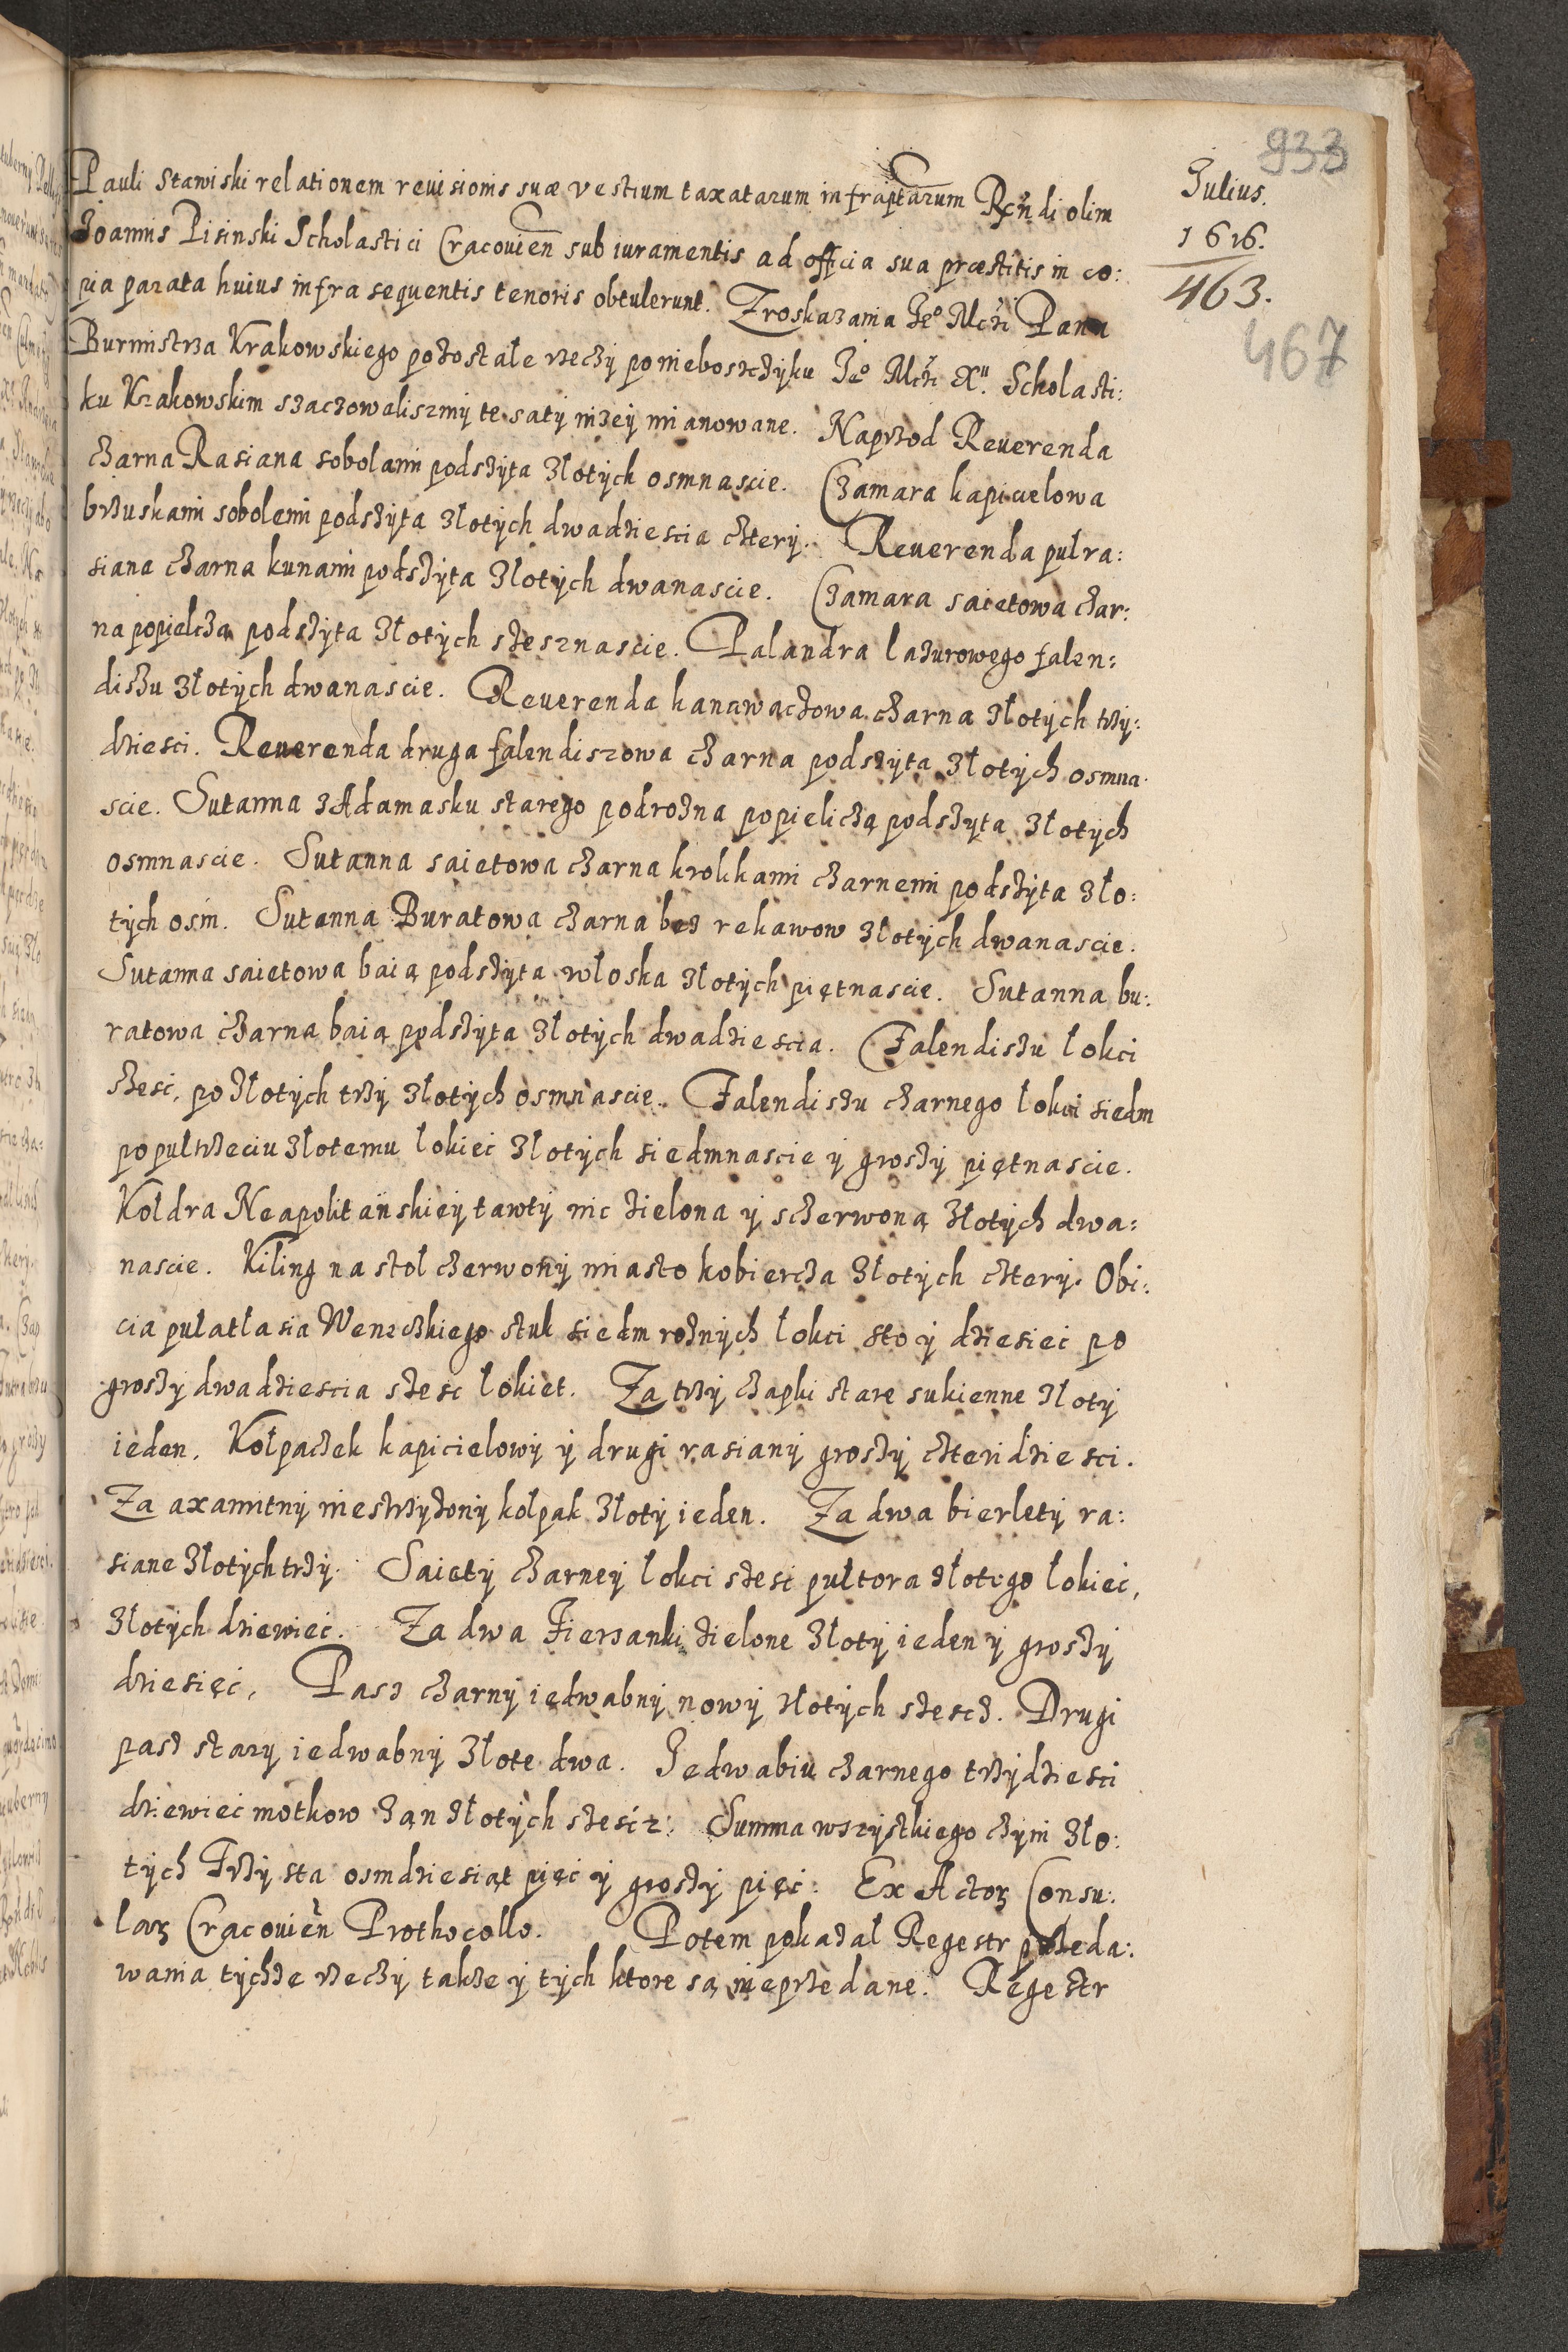 933
Julius.
1616.
463.
467
Pauli Stawiski relationem reuisionis suæ vestium taxatarum infraptarum Rńdi olim
Joannis Pisinski Scholastici Cracouień sub iuramentis ad officia sua præstitis in co:
pia parata huius infra sequentis tenoris obtulerunt. Zroskazania Je⁰ Mći Pana
Burmistrza Krakowskiego pozostałe rzeczÿ po nieboszczÿku Je⁰ Mći X. Scholasti:
ku Krakowskim szaczowaliszmÿ te satÿ nizeÿ mianowane. Naprzod Reuerenda
czarna Rasiana sobolami podszÿta złotÿch osmnascie. Czamara kapicielowa
brzuskami sobolemi podszÿta złotÿch dwadziescia czterÿ. Reuerenda pułra:
siana czarna kunami podszÿta złotÿch dwanascie. Czamara saietowa czar:
na popielczą podszÿta złotÿch szesznascie. Palandra lazurowego falen:
diszu złotÿch dwanascie. Reuerenda kanawaczowa czarna złotÿch trzÿ:
dziesci. Reuerenda druga falendiszowa czarna podszÿta złotÿch osmna
scie. Sutanna z Adamasku starego podrozna popieliczą podszÿta złotÿch
osmnascie. Sutanna saietowa czarna krolikami czarnemi podszÿta zło:
tÿch osḿ. Sutanna Buratowa czarna bez rekawow złotÿch dwanascie.
Sutanna saietowa baią podszÿta włoska złotÿch piętnascie. Sutanna bu:
ratowa czarna baią podszÿta złotÿch dwadziescia. Falendiszu łokci
szesć, po złotÿch trzÿ złotÿch osmnascie. Falendiszu czarnego łokci siedm
po pułtrzeciu złotemu łokieć złotÿch siedmnascie ÿ groszÿ piętnascie.
Kołdra Neapolitańskieÿ tawtÿ nic zielona ÿ sczerwoną złotÿch dwa:
nascie. Kiling na stoł czerwonÿ miasto kobiercza złotÿch czterÿ. Obi:
cia pułatłasia Weneczkiego stuk siedm roznÿch łokci sto ÿ dziesieć po
groszÿ dwadziescia szesc łokiet. Za trzÿ czapki stare sukienne złotÿ
ieden. Kołpaczek kapicielowÿ ÿ drugi rasianÿ groszÿ czteridziesci.
Za axamitnÿ niestrzÿzonÿ kołpak złotÿ ieden. Za dwa bierletÿ ra:
siane złotÿch trzÿ. Saietÿ czarneÿ łokci szesć pułtora złotego łokieć,
złotÿch dziewieć. Za dwa Fieranki zielone złotÿ ieden ÿ groszÿ
dziesięć, Pasz czarnÿ iedwabnÿ nowÿ złotÿch szescz. Drugi
pasz starÿ iedwabnÿ złote dwa. Jedwabiu czarnego trzÿdziesci
dziewieć motkow zań złotÿch szesćz. Summa wszÿstkiego czÿni zło:
tÿch Trzÿ sta osmdziesiąt pięć ÿ groszÿ pięć. Ex Actoꝝ Consu:
laꝝ Cracouień Prothocollo. Potem pokazał Regestr przeda:
wania tÿchze rzeczÿ takze ÿ tÿch ktore są nieprzedane. Regestr